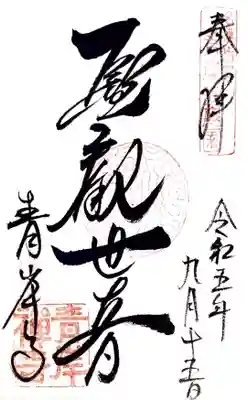 奉拝
令和五年
九月十五日
聖觀世音
青岸寺
青岸禅寺